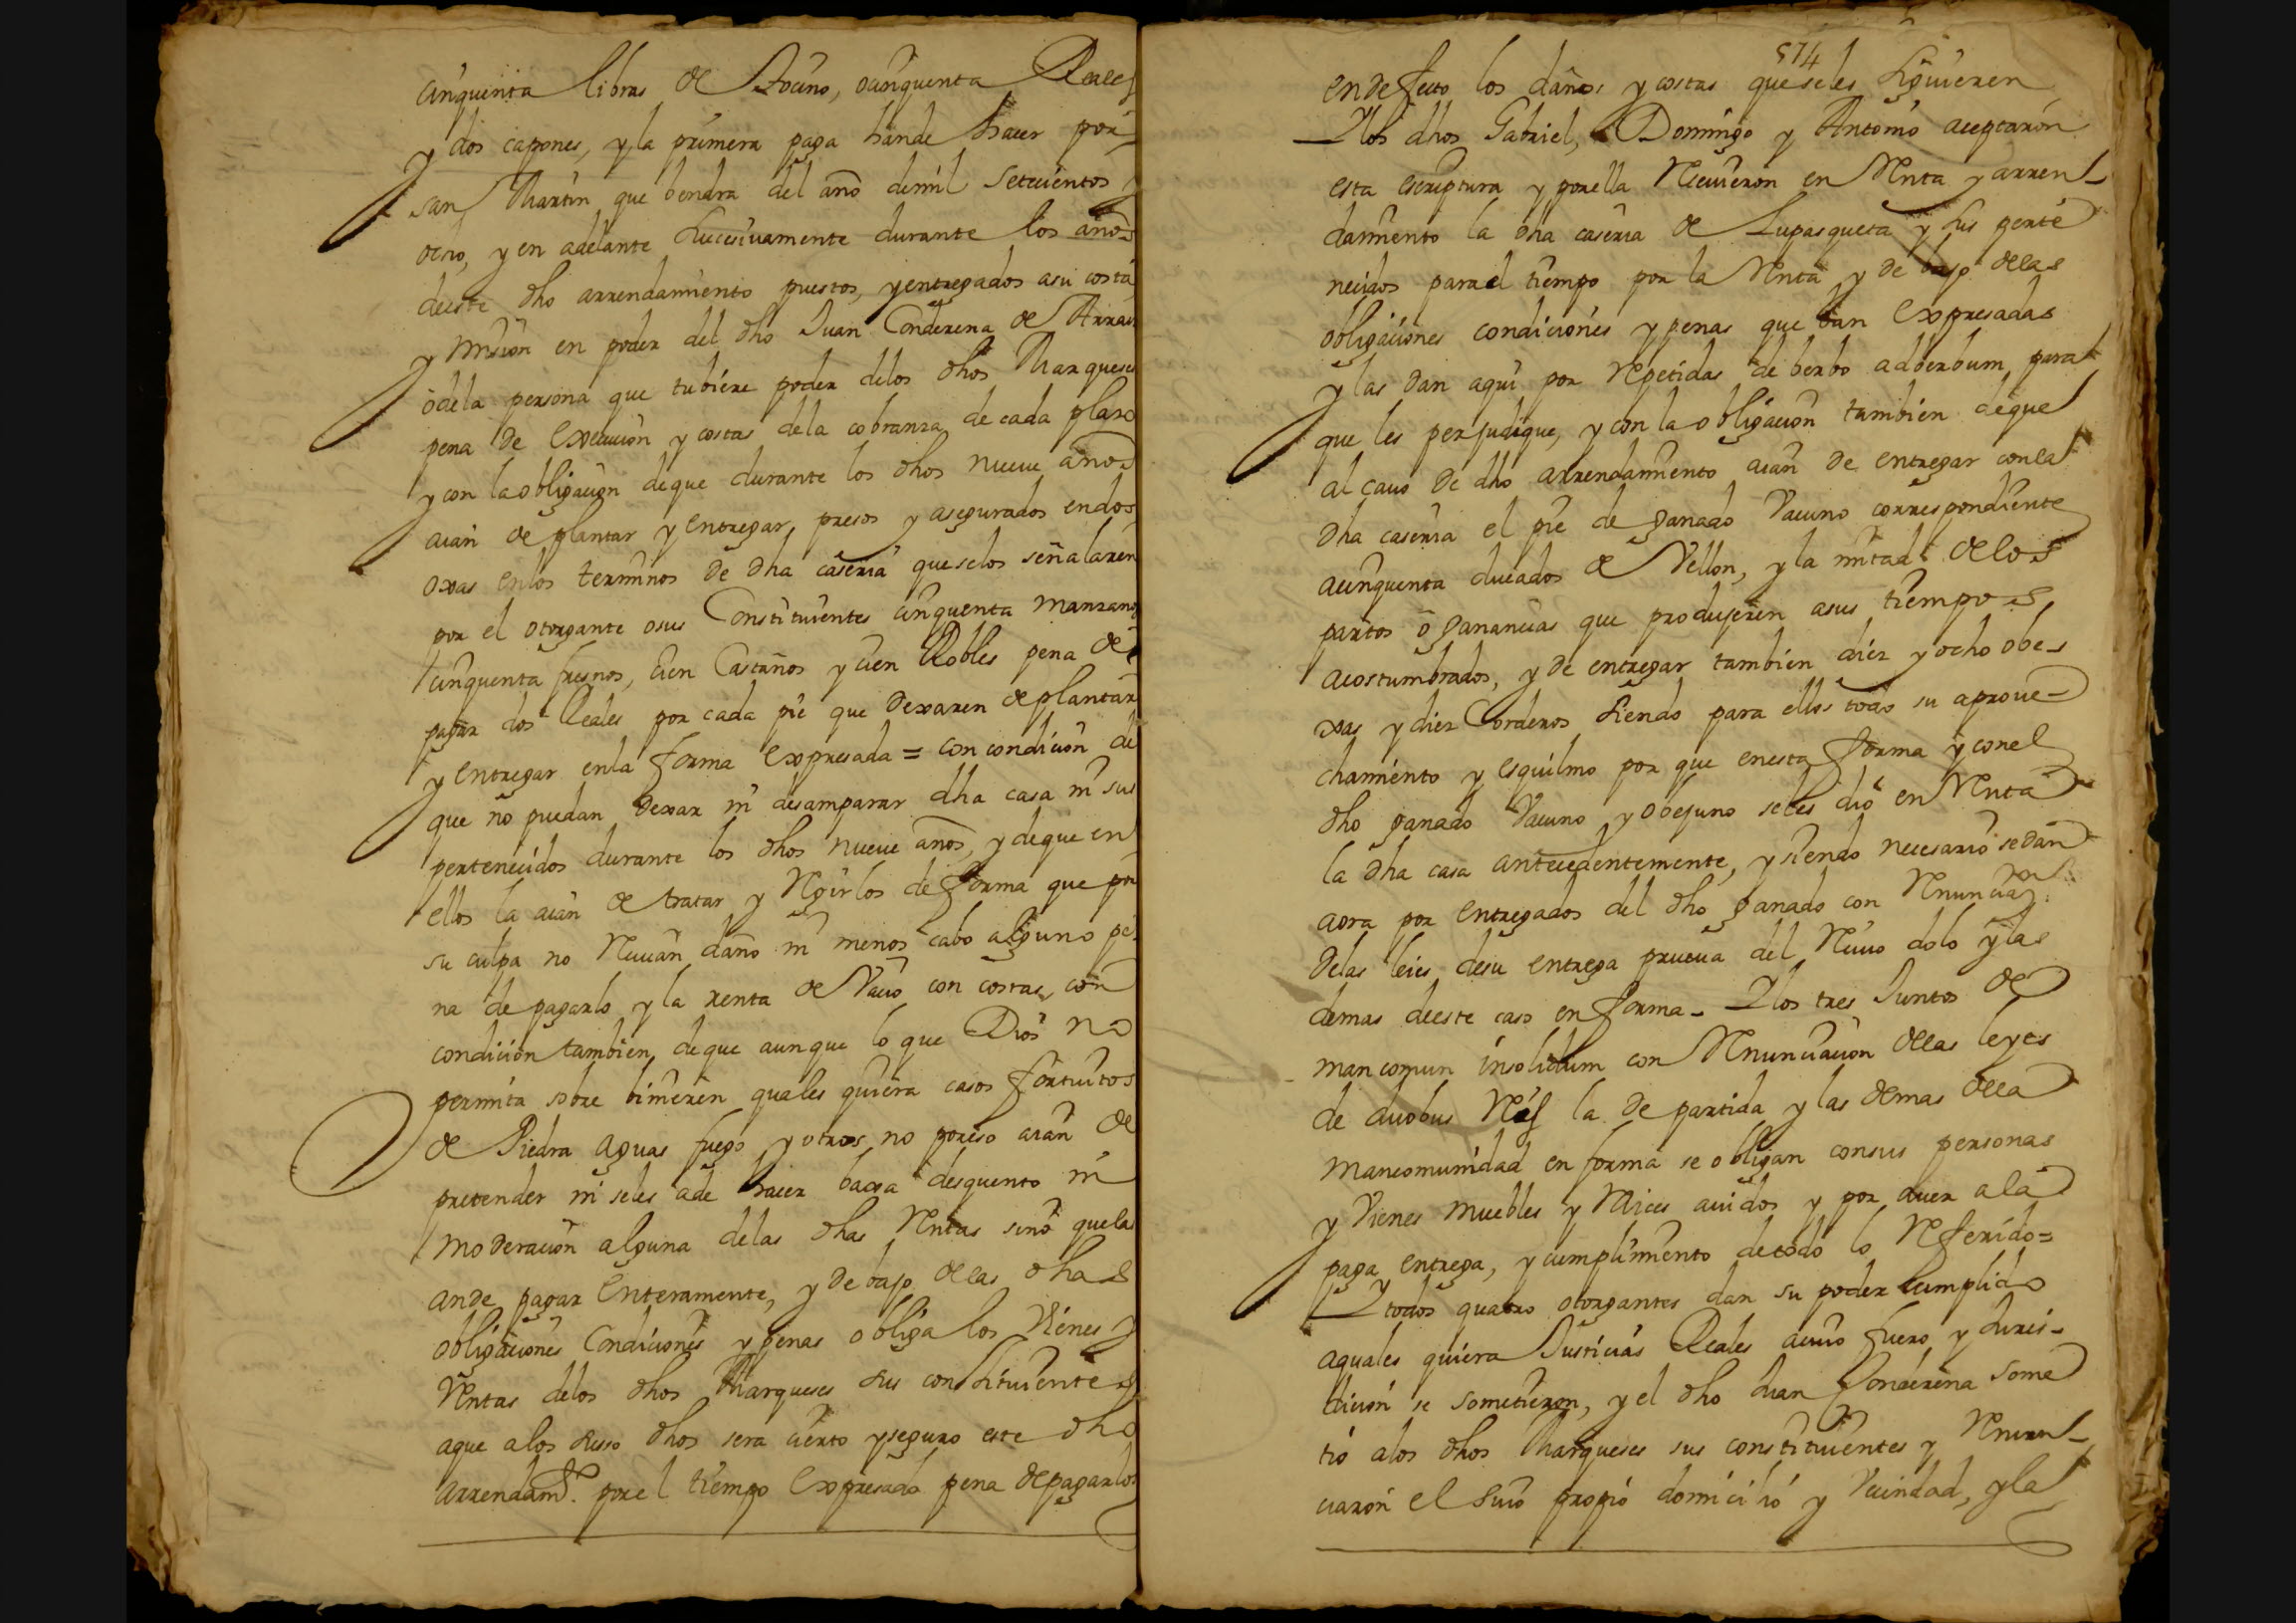 cinquenta libras de tocino, o cinquenta Reales
y dos capones, y la primera paga hande hacer por
san Martin que bendra del año demil setecientos y
ocho, y en adelante sucesivamente durante los años
deeste dho arrendamiento puestos, y entregados asu costa
y mision en poder del dho Juan Conderena de
o dela persona que tubiere poder delos dhos Marqueses
pena de execucion y costas dela cobranza de cada plazo
y con la obligacion deque durante los dhos nueve años
aian de plantar y entregar, presos y asegurados endos
oxas enlos terminos de dha caseria que selos señalaren
por el otorgante osus Constituientes cinquenta manzanos
cinquenta fresnos, cien Castaños y cien Robles pena de
pagar dos Reales por cada pie que dexaren de plantar
y entregar enla forma expresada = con condicion de
que no puedan dexar ni desamparar dha casa ni sus
pertenecidos durante los dhos nueve años, y deque en
ellos la aian de tratar y Regirlos de forma que por
su culpa no Reciuan daño ni menos cabo alguno pe
na de pagarlo y la renta de Vacio con costas, con
condicion tambien, deque aunque lo que Dios no
permita sobre binieren quales quiera casos fortuitos
de Piedra aguas fuego y otros no poreso aian de
pretender ni seles ade hacer baxa desquento ni
moderacion alguna delas dhas Rentas sino quelas
ande pagar Enteramente, y debajo delas dhas
obligaciones Condiciones y penas obliga los Vienes y
Rentas delos dhos Marqueses sus constituientes
aque alos suso dhos sera cierto y seguro este dho
arrendamto. porel tiempo Expresado pena depagarlos
574
endefecto los daños y costas que seles siguieren
Ylos dhos Gabriel, Domingo y Antonio aceptaron
esta escriptura y porella Reciuieron en Renta y arren-
damiento la dha caseria de Lupasqueta y sus perte
necidos parael tiempo por la Renta y de bajo delas
obligaciones condiciones y penas que ban Expresadas
y las dan aqui por Repetidas de berbo adberbum, para
que les perjudique, y con la obligacion tambien deque
al cauo de dho arrendamiento aian de entregar conla
dha caseria el pie de ganado Vacuno correspondiente
acinquenta ducados de Vellon, y la mitad delos
partos o ganancias que produjeren asus tiempos
acostumbrados, y de entregar tambien diez y ocho obe-
xas y diez Corderos siendo para ellos todo su aproue
chamiento y esquilmo por que enesta forma y conel
dho ganado Vacuno y obejuno seles dio en Renta
la dha casa antecedentemente, y siendo necesario sedan
aora por entregados del dho ganado con Renunciaon.
delas leies desu entrega prueua del Reciuo dolo y las
demas deeste caso en forma - Ylos tres Juntos de
mancomun insolidum con Renunciacion delas leyes
de duobus Reis la de partida y las demas dela
mancomunidad en forma se obligan consus personas
y Vienes muebles y Raices auidos y por auer ala
paga, entrega, y cumplimiento detodo lo Referido =
Y todos quatro otorgantes dan su poder cumplido
aquales quiera Justicias Reales acuio fuero y Juris-
dicion se sometieron, y el dho Juan Conderena some
tio alos dhos Marqueses sus constituientes y Renun-
ciaron el suio propio domicilio y Vecindad, y la